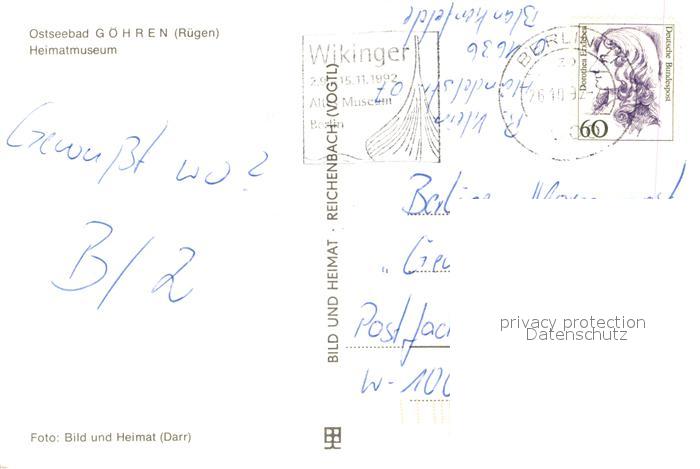 Ostseebad GÖHREN (Rügen)
Heimatmuseum
Gewußt wo?
B/2
Foto: Bild und Heimat (Darr)
BILD UND HEIMAT · REICHENBACH (VOGTL)
Wikinger
15.11.1992
Altes Museum
Berlin
R. Klein
07
1636
Blankenfelde
BERLIN
Deutsche Bundespost
Dorothea Erxleben
60
Berliner
"Gew
Postfac
W-100
privacy protection
Datenschutz